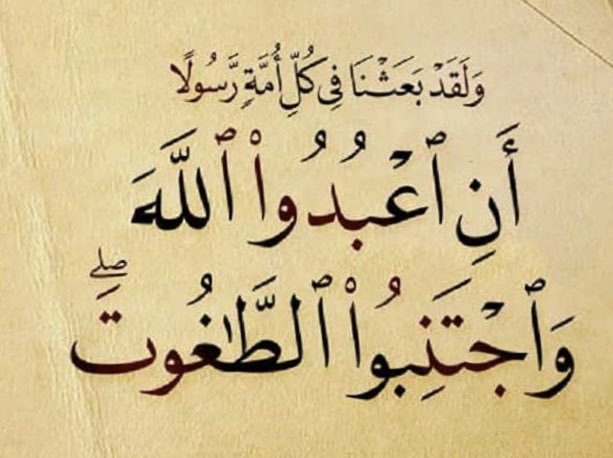 وَلَقَدْ بَعَثْنَا فِى كُلِّ أُمَّةٍ رَّسُولًا
أَنِ ٱعْبُدُوا۟ ٱللَّهَ
وَٱجْتَنِبُوا۟ ٱلطَّٰغُوتَ ۖ